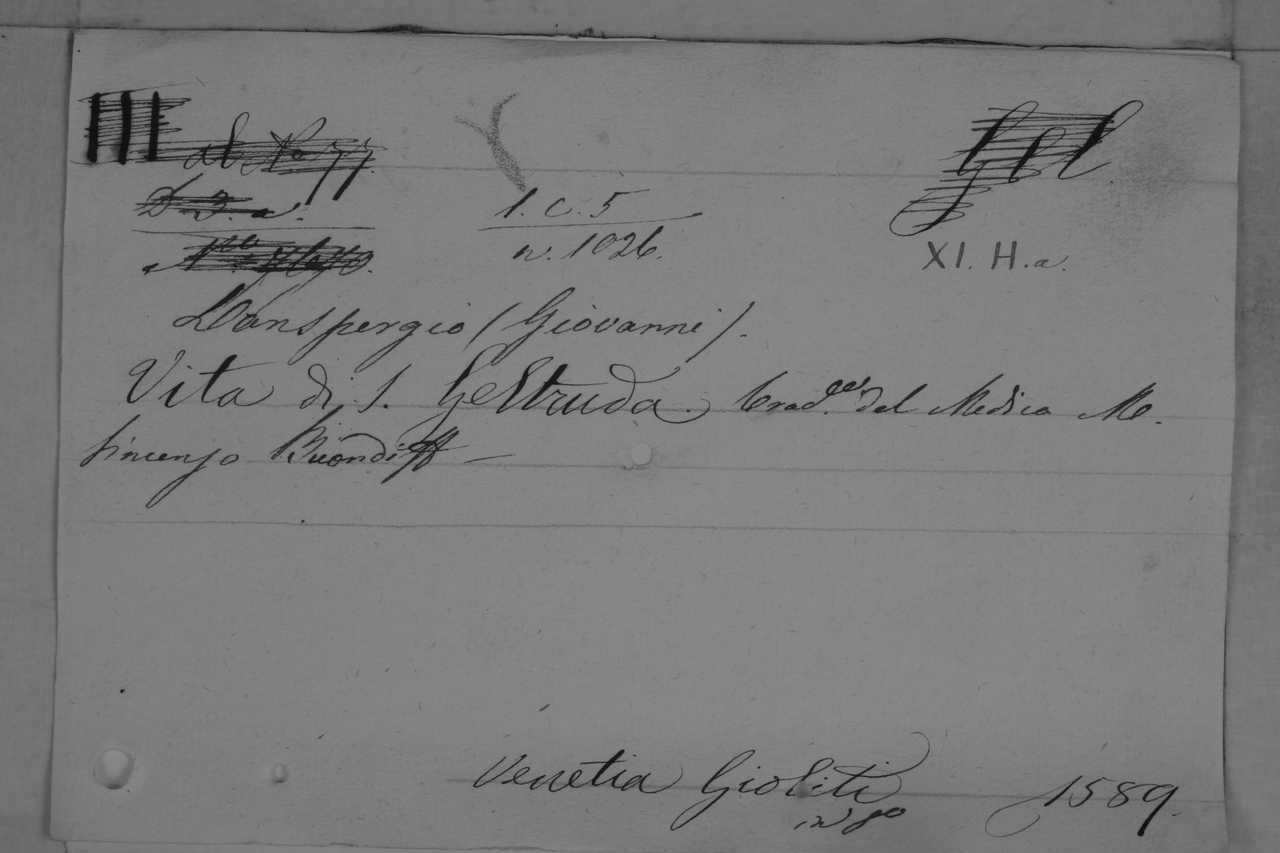 III
ab No 77.
D. 3. a.
1. C. 5
n. 1026.
XI. H. a.
Lanspergio (Giovanni).
Vita di S. Geltruda. Trad.ne del Medico M.
Vincenzo Buondi
Venetia Gioliti 1589.
in 8o